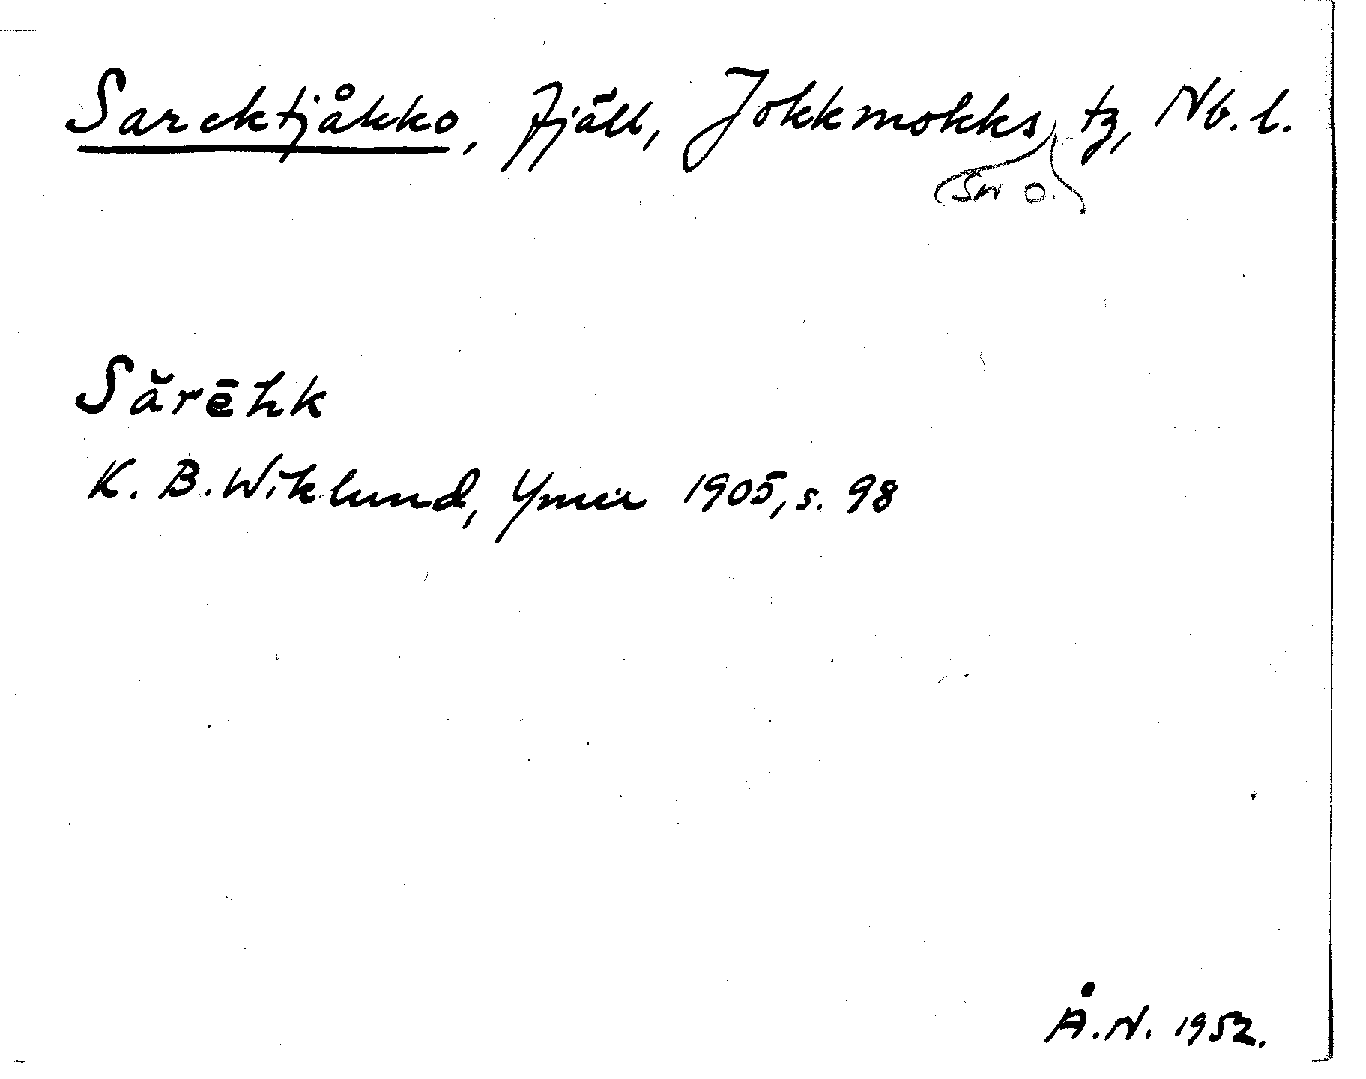 Sarektjåkko, fjäll, Jokkmokks tg, Nb. l.
Sn o.
Sărēhk
K. B. Wiklund, Ymer 1905, s. 98
Å.N. 1952.